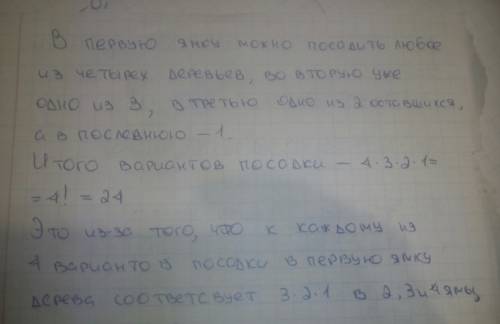 В первую ямку можно посадить любое
из четырех деревьев, во вторую уже
одно из 3, в третью одно из 2 оставшихся,
а в последнюю - 1.
Итого вариантов посадки - 4·3·2·1=
=4! = 24
Это из-за того, что к каждому из
4 вариантов посадки в первую ямку
дерева соответсвует 3·2·1 в 2,3и4 ямы